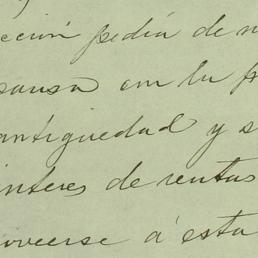 ección pedía de
pausa en la
antiguedad y s
interes de rentas
oveerse á esta